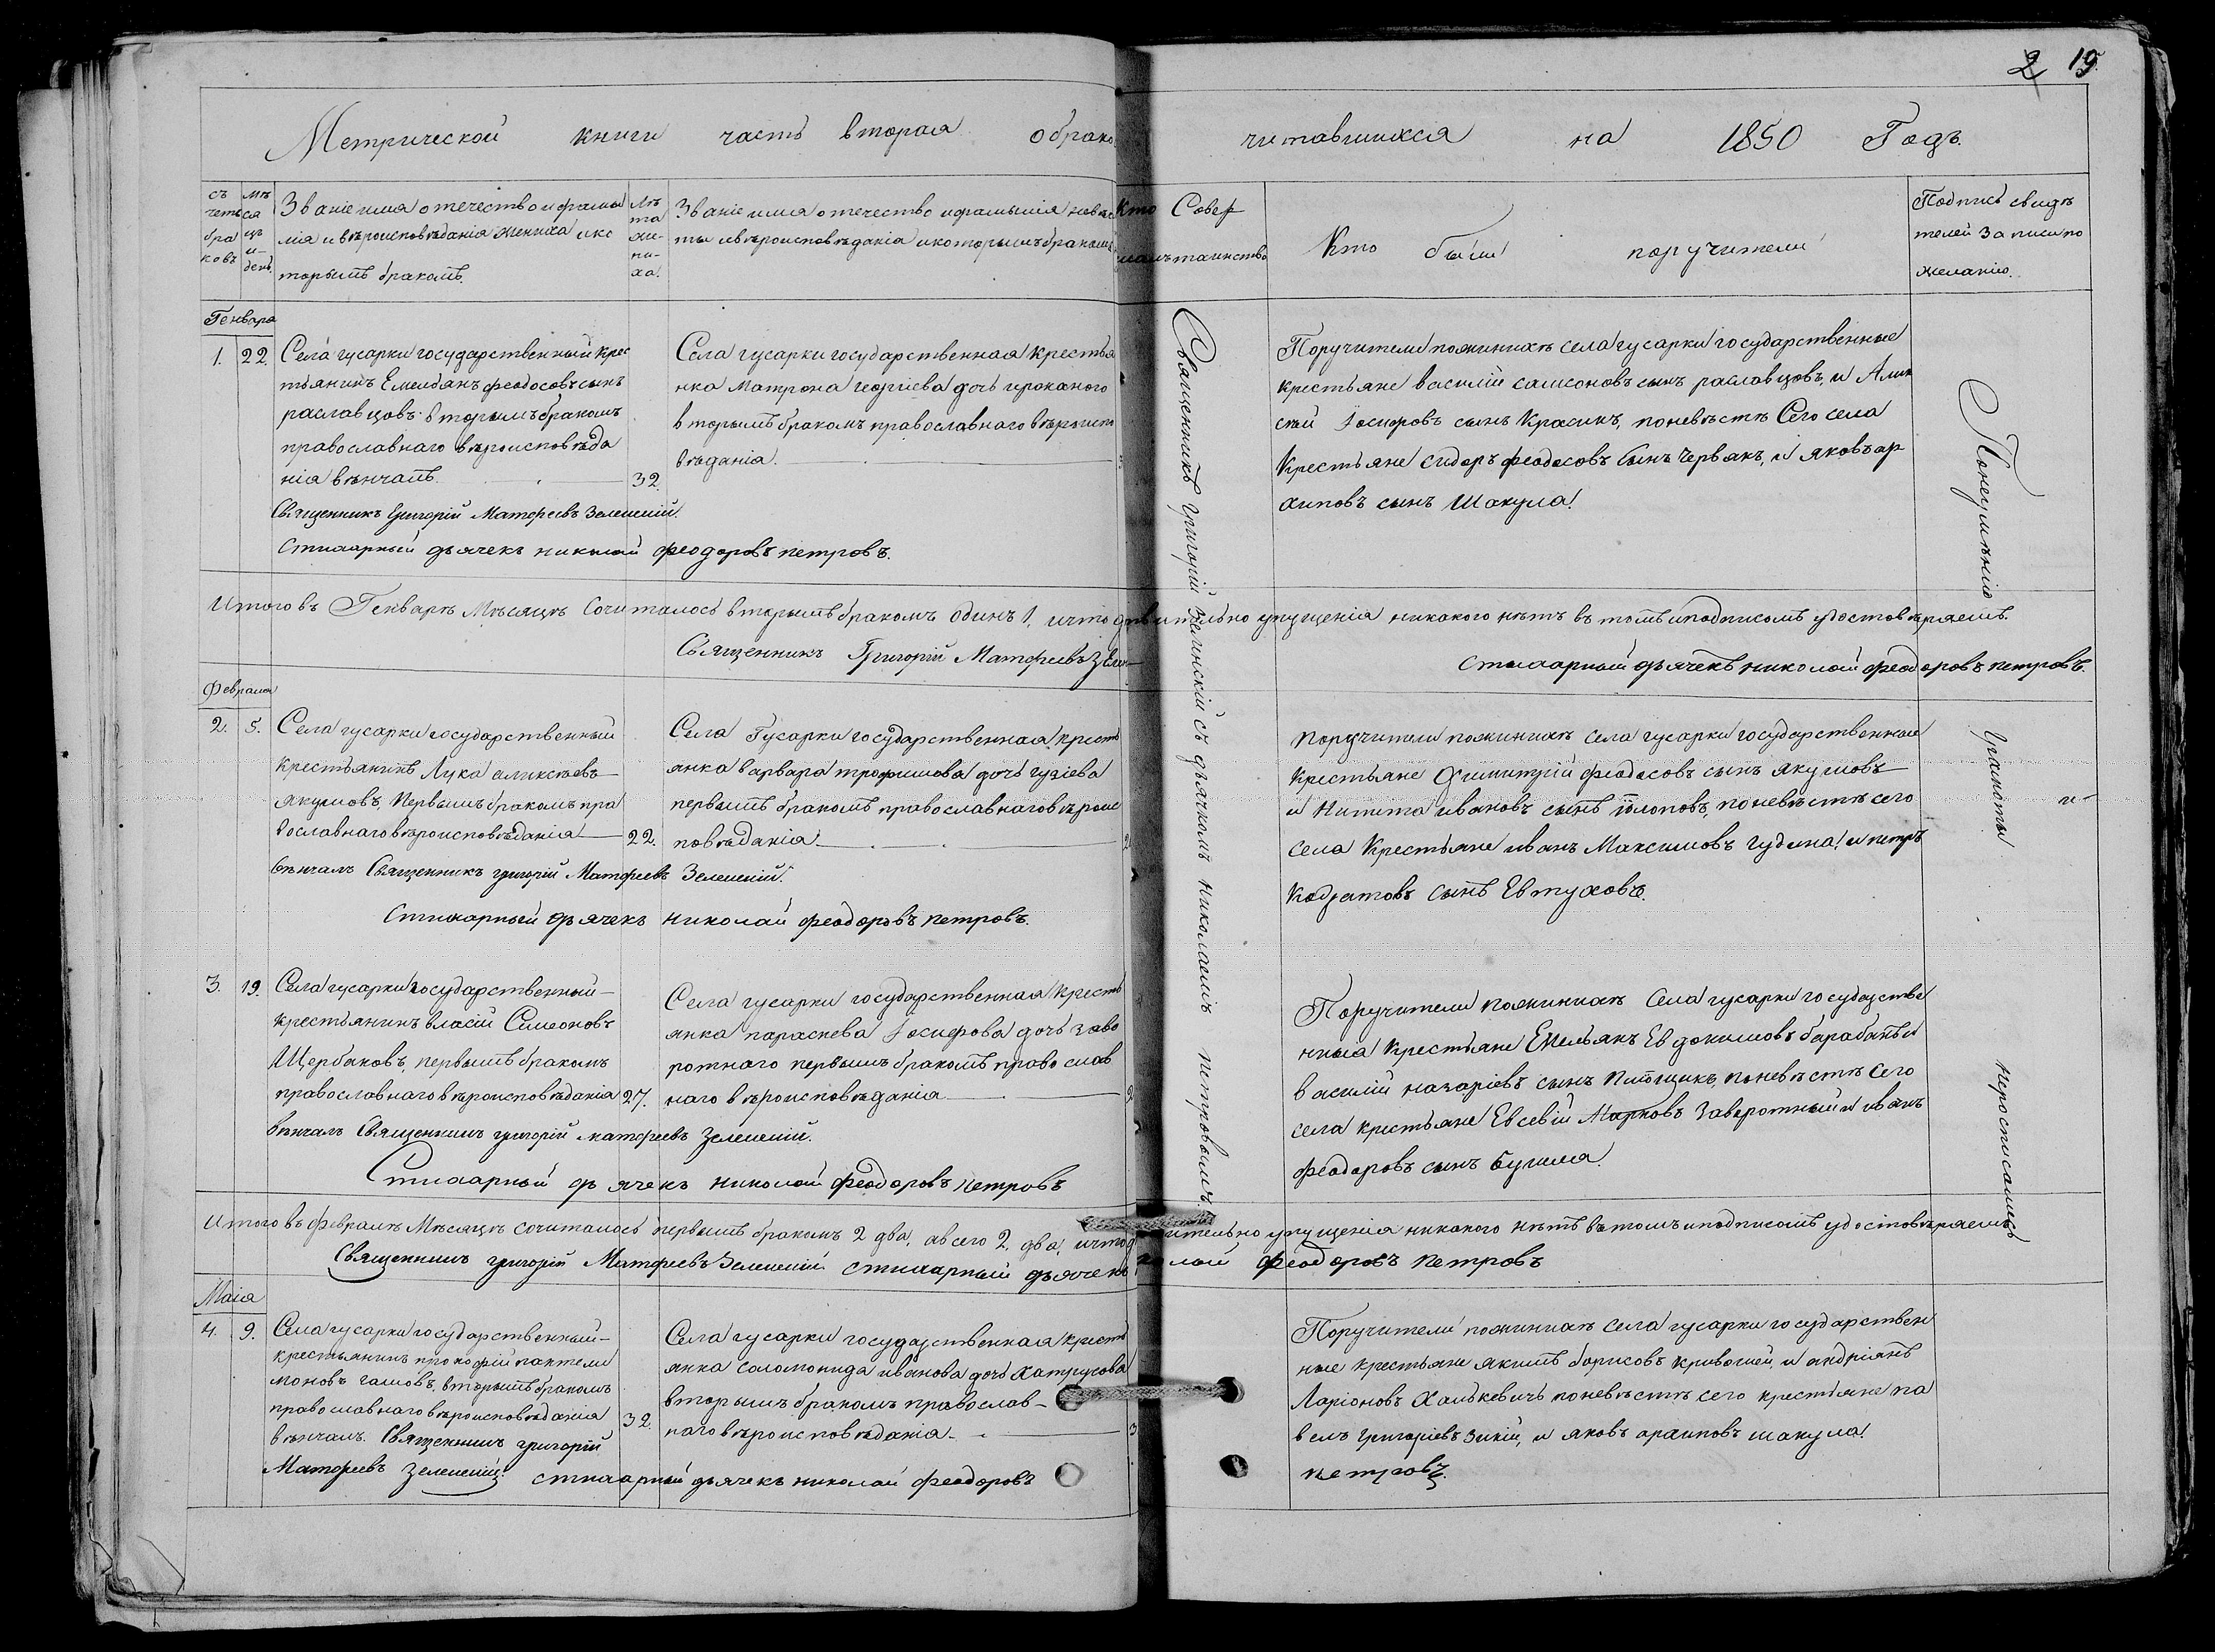 2 19
Метрической книги часть вторая о брако
читавшихся на 1850 Годъ.
съ
четъ
бра
ковъ
мѣ
ся
цъ
и
день
Званіе имя отечество и фами
лія и вѣроисповѣданія жениха и ко
торымъ бракомъ.
Лѣ
та
же-
ни-
ха.
Званіе имя отечество и фамилія невѣс
ты и вѣроисповѣданія и которымъ бракомъ
Кто Совер
таинство
Кто были поручители
Подпись свидѣ
телей записи по
желанію.
Генваря
1. 22.
Села гусарки государственный крес
тьянинъ Емельянъ феодосовъ сынъ
раславцовъ вторымъ бракомъ
православнаго вѣроисповѣда
нія вѣнчалъ 32.
Священникъ Григорій Матфеевъ Зеленскій.
Стихарный дьячекъ николай феодоровъ петровъ.
Села гусарки государственная крестья
нка Матрона георгіева дочь
вторымъ бракомъ православнаго вѣроиспо
вѣданія.
Поручители по женихѣ села гусарки государственные
крестьяне василій самсоновъ сынъ раславцовъ, и Алек
сѣй Іосифовъ сынъ Красикъ, по невѣстѣ Сего села
Крестьяне сидоръ феодосовъ сынъ Червякъ, и яковъ ар
хиповъ сынъ Шакула.
Священникъ Григорій Зеленскій съ дьячкомъ Николаемъ Петровымъ
По неумѣнію
грамоты
не
неросписались
Итого въ Генварѣ Мѣсяцѣ Сочиталось вторымъ бракомъ одинъ 1, и что дѣйвительно упущенія никакого нѣтъ въ томъ и подписомъ удостовѣряемъ.
Священникъ Григорій Матфеевъ Зелен
Стихарный дьячекъ николай феодоровъ петровъ.
Февраля
2. 5.
Села гусарки государственный
крестьянинъ Лука алексѣевъ
якумовъ, первымъ бракомъ пра
вославнаго вѣроисповѣданія 22.
вѣнчалъ Священникъ григорій Матфеевъ Зеленскій.
Стихарный дьячекъ николай феодоровъ петровъ.
Села Гусарки государственная кресть
янка варвара трофимова дочь гузіева
первымъ бракомъ православнаго вѣроис
повѣданія. 2
поручители по женихѣ села гусарки государственные
крестьяне Димитрій феодосовъ сынъ якумовъ
и Никита ивановъ сынъ по невѣстѣ сего
села Крестьяне иванъ Максимовъ гудына, и петръ
Кодратовъ сынъ Евтуховъ.
3. 19.
Села гусарки государственный
крестьянинъ власій Симеоновъ
Щербаковъ, первымъ бракомъ
православнаго вѣроисповѣданія 27.
вѣнчалъ Священникъ григорій матфеевъ Зеленскій.
Стихарный дьячекъ николай феодоровъ петровъ
Села гусарки государственная кресть
янка параскева Іосифова дочь заво
ротнаго первымъ бракомъ право слав
наго вѣроисповѣданія 2
Поручители по женихѣ Села гусарки государстве
нныя крестьяне Емельянъ Евдокимовъ барабанъ и
василій назаріевъ сынъ по невѣстѣ сего
села крестьяне Евсевій Марковъ Заворотный и иванъ
феодоровъ сынъ
Итого въ февралѣ Мѣсяцѣ сочиталось первымъ бракомъ 2 два, а всего 2, два, и что д ительно упущенія никакого нѣтъ въ томъ и подписомъ удостовѣряемъ
Священникъ григорій Матфеевъ Зеленскій стихарный дьячекъ колай феодоровъ Петровъ
Маія
4. 9.
Села гусарки государственный
крестьянинъ прокофій пантели
моновъ гамовъ, вторымъ бракомъ
православнаго вѣроисповѣданія 32.
вѣнчалъ. Священникъ григорій
Матфеевъ Зеленскій стихарный дьячекъ николай феодоровъ
петровъ.
Села гусарки государственная кресть
янка соломонида иванова дочь Хатрусова
вторымъ бракомъ православ-
наго вѣроисповѣданія. 3
Поручители по женихѣ села гусарки государствен
ные крестьяне якимъ борисовъ кривошей, и андріянъ
Ларіоновъ Халькевичъ по невѣстѣ сего крестьяне па
велъ григоріевъ зикій, и яковъ архиповъ шакула.